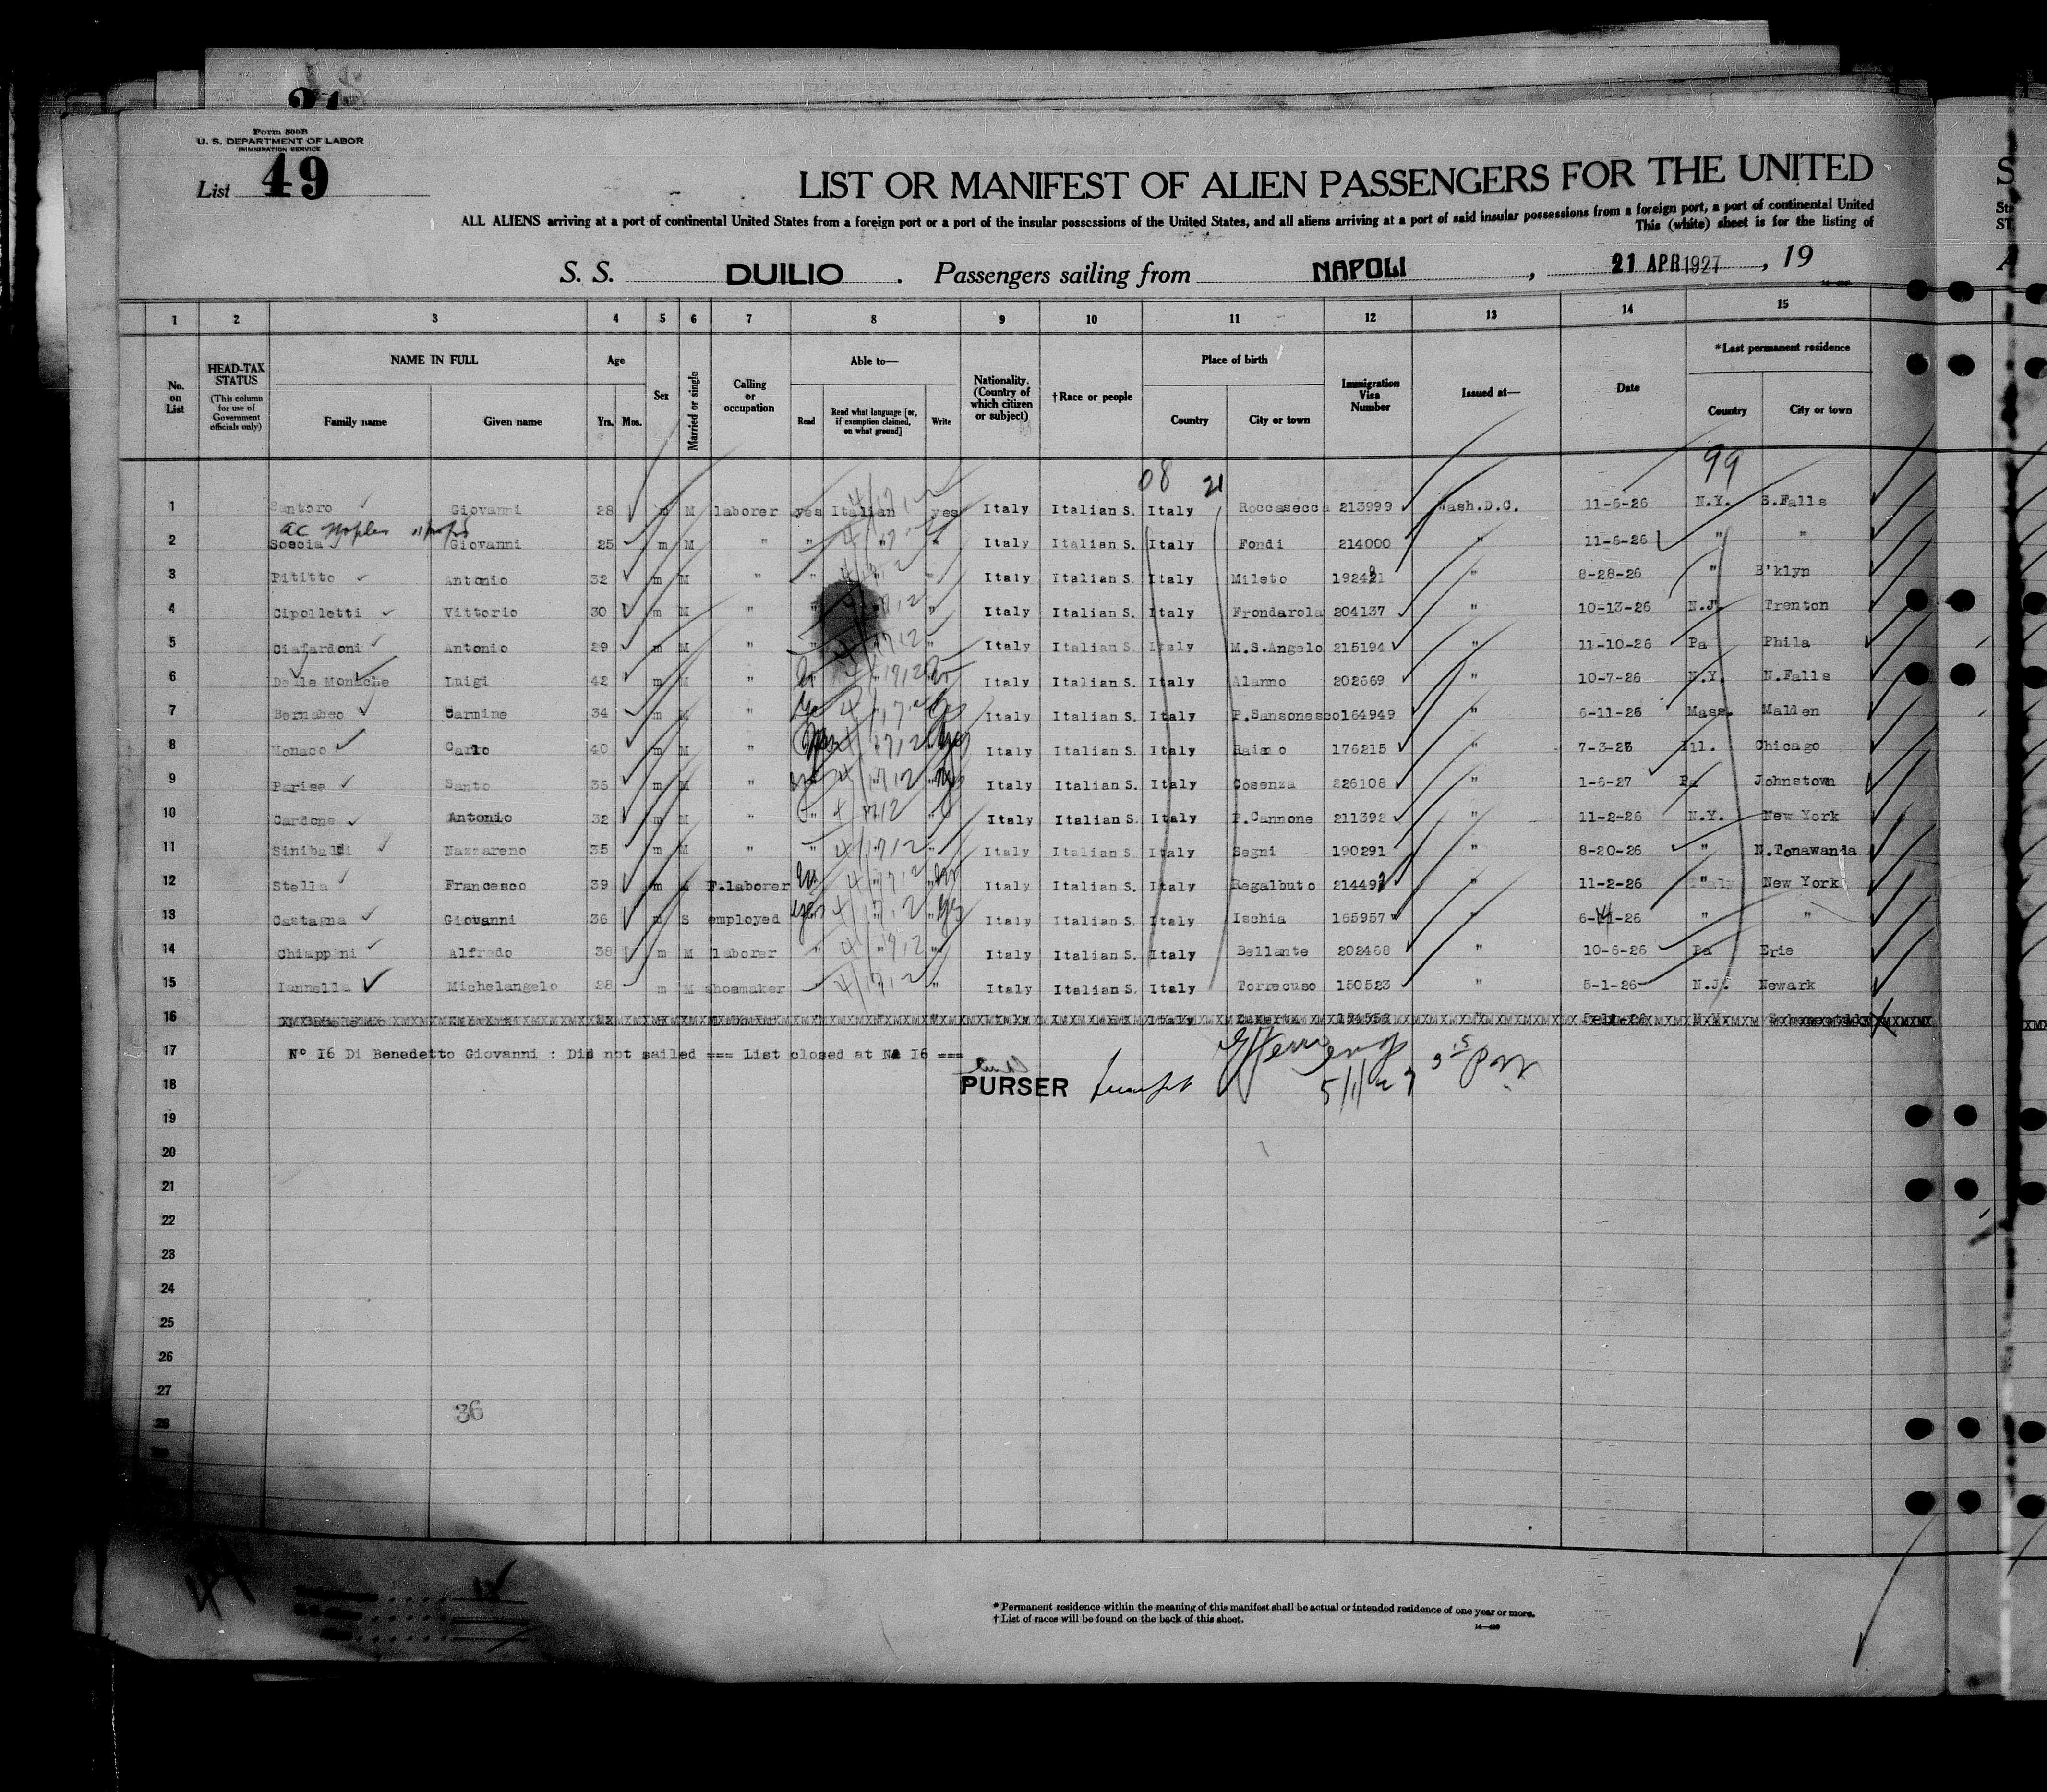 Form 500B
U. S. DEPARTMENT OF LABOR
IMMIGRATION SERVICE
List 49
LIST OR MANIFEST OF ALIEN PASSENGERS FOR THE UNITED
ALL ALIENS arriving at a port of continental United States from a foreign port or a port of the insular possessions of the United States, and all aliens arriving at a port of said insular possessions from a foreign port, a port of continental United
This (white) sheet is for the listing of
S. S. DUILIO . Passengers sailing from NAPOLI , 21 APR 1927 , 19
1 2 3 4 5 6 7 8 9 10 11 12 13 14 15
No. on List
HEAD-TAX STATUS (This column for use of Government officials only)
NAME IN FULL Family name Given name
Age Yrs. Mos.
Sex
Married or single
Calling or occupation
Able to— Read Read what language [or, if exemption claimed, on what ground] Write
Nationality. (Country of which citizen or subject)
†Race or people
Place of birth Country City or town
Immigration Visa Number
Issued at—
Date
*Last permanent residence Country City or town
08 21 99
1 Santoro Giovanni 28 m M laborer yes Italian yes Italy Italian S. Italy Roccasecca 213999 Wash.D.C. 11-6-26 N.Y. S.Falls
2 Soscia Giovanni 25 m M " " " " Italy Italian S. Italy Fondi 214000 " 11-6-26 " "
3 Pititto Antonio 32 m M " " " " Italy Italian S. Italy Mileto " 8-28-26 " B'klyn
4 Cipolletti Vittorio 30 m M " " " " Italy Italian S. Italy Frondarola 204137 " 10-13-26 N.J. Trenton
5 Ciafardoni Antonio 29 m M " " " " Italy Italian S. Italy M.S.Angelo 215194 " 11-10-26 Pa Phila
6 Delle Monache Luigi 42 m M " " " Italy Italian S. Italy Alanno 202669 " 10-7-26 N.Y. N.Falls
7 Bernabeo Carmine 34 m M " " Italy Italian S. Italy P.Sansonesco 164949 " 6-11-26 Mass. Malden
8 Monaco Carlo 40 m M " " Italy Italian S. Italy 176215 " 7-3-26 Ill. Chicago
9 Parise Santo 35 m M " " Italy Italian S. Italy Cosenza 226108 " 1-6-27 Pa Johnstown
10 Cardone Antonio 32 m M " " " Italy Italian S. Italy P.Cannone 211392 " 11-2-26 N.Y. New York
11 Sinibaldi Nazzareno 35 m M " " " " Italy Italian S. Italy Segni 190291 " 8-20-26 " N.Tonawanda
12 Stella Francesco 39 m M F.laborer " " Italy Italian S. Italy Regalbuto " 11-2-26 " New York
13 Castagna Giovanni 36 m S employed yes " yes Italy Italian S. Italy Ischia 165957 " " "
14 Chiappini Alfredo 38 m M laborer " " " Italy Italian S. Italy Bellante 202468 " 10-6-26 Pa Erie
15 Iannella Michelangelo 28 m M shoemaker " " " Italy Italian S. Italy Torrecuso 150523 " 5-1-26 N.J. Newark
16
17 Nº 16 Di Benedetto Giovanni : Did not sailed === List closed at Nº 16 ===
18 PURSER 5/1/27
19
20
21
22
23
24
25
26
27
28
36
* Permanent residence within the meaning of this manifest shall be actual or intended residence of one year or more.
† List of races will be found on the back of this sheet.